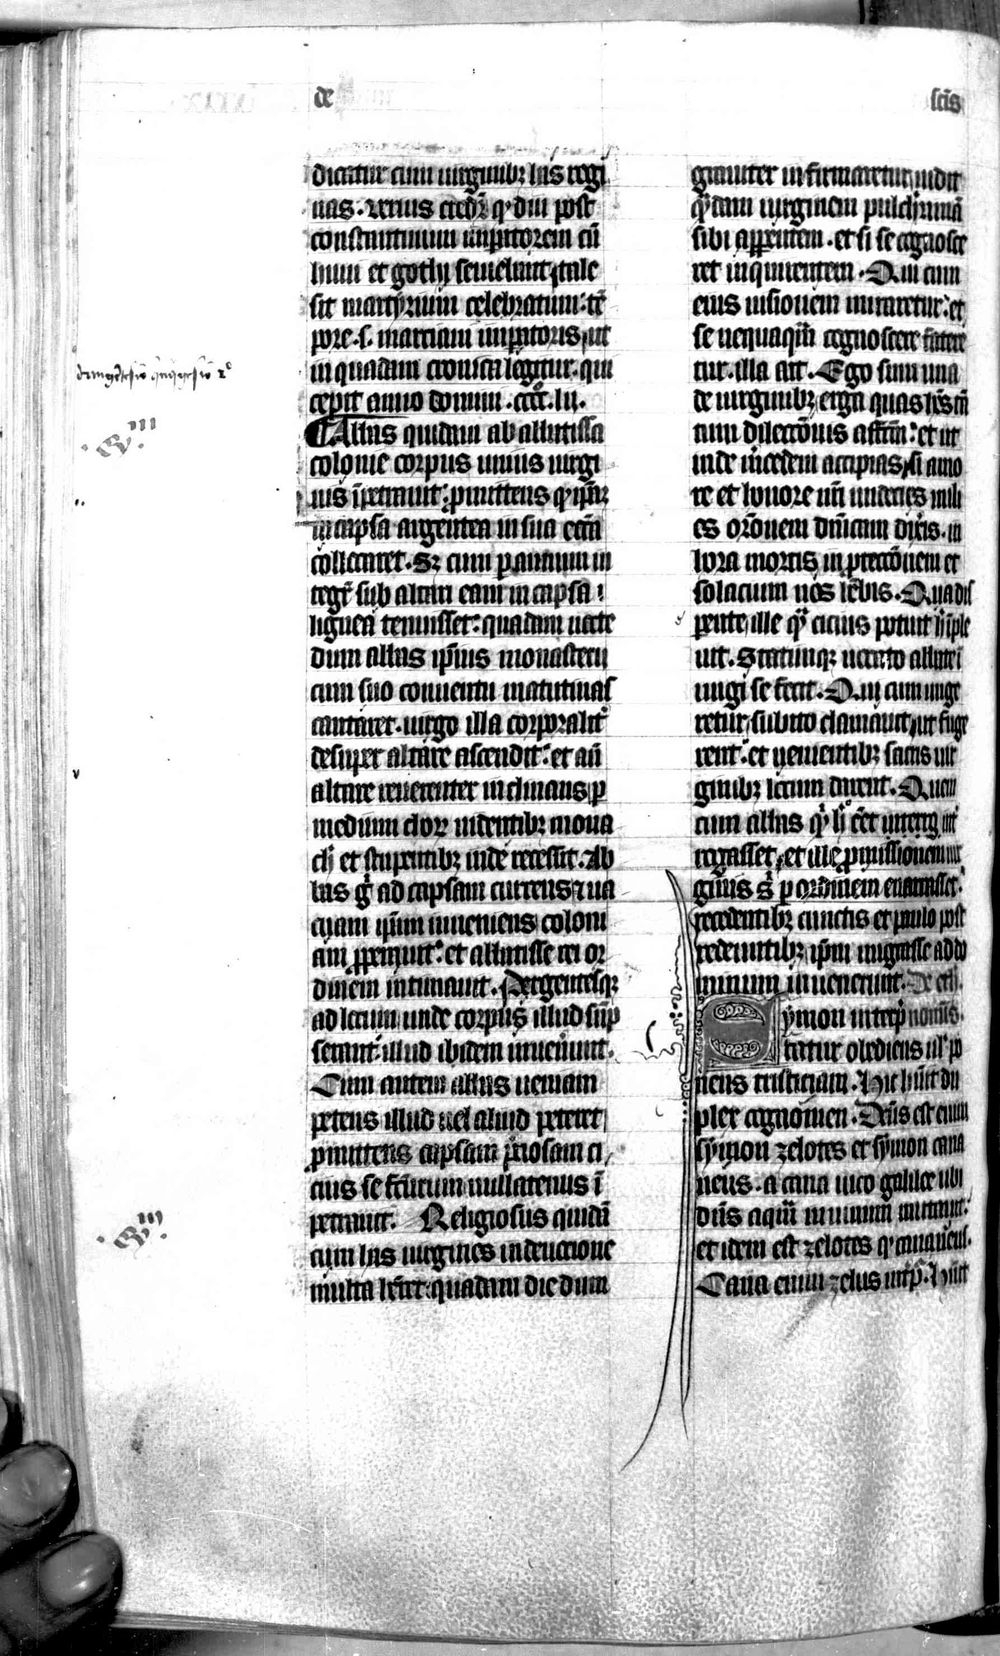 de
scis
dicatur cum uirginibꝫ his regi
nas. verius credit᷑ qͥ diu post
constantinum imp̄atorem cū
huni et gothi seuiebant, tale
sit martyrium celebratum: tē
pore .s. marciani imp̄atoris, ut
in quadam cronica legitur. qui
cepit anno domini .cccͦc. lii.
Abbas quidam ab abbatissa
colonie corpus unius uirgi
nis īpetrauit: ꝓmittens qͥ ip̄m
in capsa argentea in sua ecc̄a
collocaret. Sꝫ cum ꝑ annum in
tegrͫ sub altari eam in capsa
lignea tenuisset: quadam nocte
dum abbas ip̄ius monasterii
cum suo conuentu matutinas
cantaret. uirgo illa corporalit᷑
desuper altare descendit: et an̄
altare reuerenter inclinans, ꝑ
medium chorꝝ uidentibꝫ mona
ch̄ et stupentibꝫ inde recessit. Ab
bas gͥ ad capsam currens, et ua
cuam ip̄am inueniens coloni
am ꝓperauit. et abbatisse rei or
dinem intimauit. Pergentesqꝫ
ad locum unde corpus illud sūp
serant: illud ibidem inuenerunt.
Cum autem abbas ueniam
petens illud uel aliud peteret
ꝓmittens capsam p̄ciosam ci
cius se fc̄urum nullatenus ī
petrauit. Religiosus quidā
cum has uirgines in deuocione
multa hr̄et: quadam die dum
grauiter infirmaretur, uidit
qͣdam uirginem pulcherrimā
sibi apparentem. et si se cognosce
ret inquirentem. Qui cum
eius uisionem miraretur: et
se nequaqͣm cognoscere fatere
tur. illa ait. Ego sum una
de uirginibꝫ, erga quas h̄es tā
tum dilecc̄onis affc̄m: et ut
inde mercedem accipias, si amo
re et honore nr̄i undecies mili
es or̄onem dn̄icam dix̄is. in
hora mortis in ꝓtecc̄onem et
solacium nos h̄ebis. Qua dis
parente, ille qͣ cicius potuit h̄ īple
uit. Statimqꝫ uocato abbate ī
ungi se fecit. Qui cum unge
retur, subito clamauit, ut fuge
rent: et uenientibꝫ sanctis uir
ginibꝫ locum darent. Quem
cum abbas qͥ h̄ eēt interr
rogasset, et ille ꝓmissionem uir
ginis sͣ ꝑ ordinem enarrasset:
recedentibꝫ cunctis et paulo post
redeuntibꝫ ip̄m migrasse ad do
minum inuenerunt.
Symon interp̄
tatur obediens uľ po
nens tristiciam. Hic habuit du
plex cognomen. Dc̄us est enim
symon zelotes et symon cana
neus. a cana uico galilee ubi
dn̄s aquā in uinum mutauit:
et idem est zelotes qͥ cananeus.
Cana enim zelus int᷑p̄. Habuit